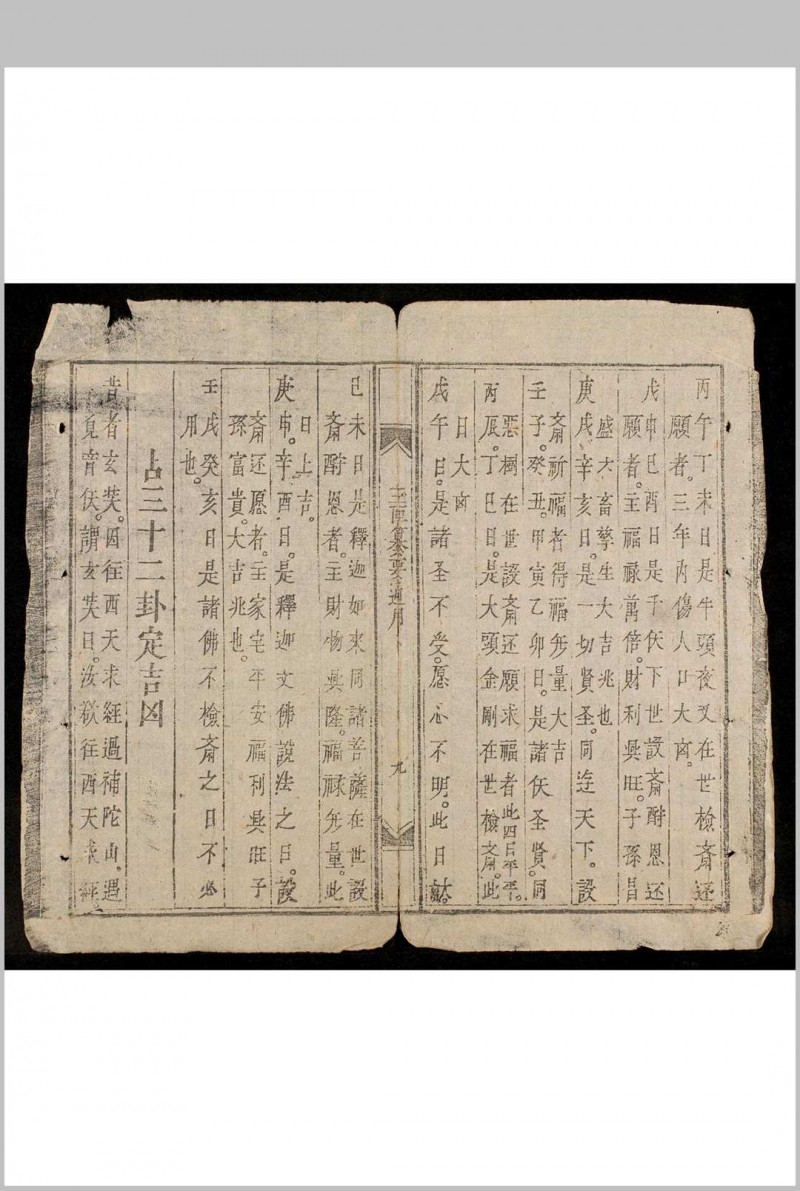 丙午丁未日是牛頭夜叉在世檢斎还
願者。三年內傷人口大㐫。
戊申巳酉日是千伕下世設斎酧恩还
願者。主福祿萬倍。財利興旺。子孫昌
盛六畜孳生大吉兆也
庚戌。辛亥日。是一切賢圣。同迯天下。設
斎祈福者得福旡量大吉
壬子。癸丑。甲寅乙卯日。是諸伕圣賢。同
惡樹在世設斎还願求福者此四日平平。
丙辰。丁巳日。是大頭金剛在世檢斎。此
日大㐫
戊午日。是諸圣不受。愿心不明。此日
通用
九
巳未日是釋迦如來同諸菩薩在世設
斎酧恩者。主財物興隆。福祿旡量。此
日上吉。
庚申。辛酉日。是釋迦文佛說法之日。設
斎还愿者。主家宅平安福利興旺子
孫富貴。大吉兆也。
壬戌癸亥日是諸佛不檢斎之日不必
用也。
占三十二卦定吉凶
昔者玄奘。因徃西天求經過補陀山。遇
見音伕。謂玄奘曰。汝欲徃西天求經。